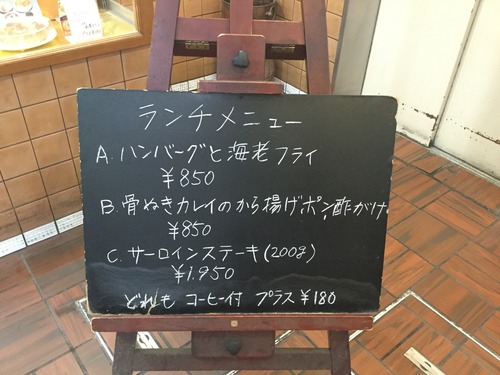 ランチメニュー
A. ハンバーグと海老フライ
¥850
B. 骨ぬきカレイのから揚げポン酢がけ
¥850
C. サーロインステーキ(200g)
¥1,950
どれも コーヒー付 プラス ¥180